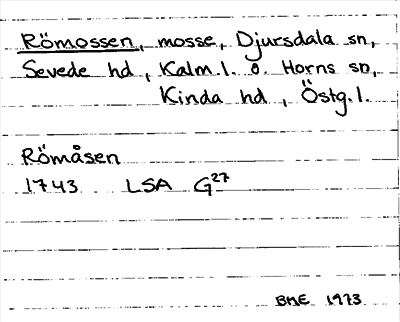 Römossen, mosse, Djursdala sn,
Sevede hd, Kalm.l. o. Horns sn,
Kinda hd, Östg.l.
Römåsen
1743 LSA G27
BME 1973